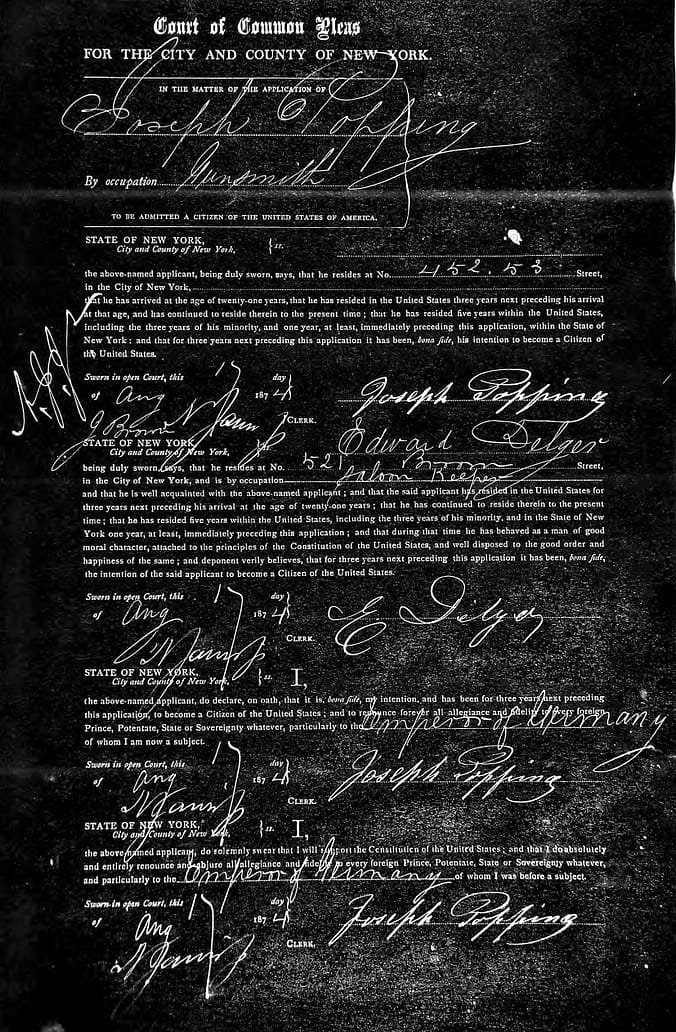 Court of Common Pleas
FOR THE CITY AND COUNTY OF NEW YORK.
IN THE MATTER OF THE APPLICATION OF
Joseph Popping
By occupation Gunsmith
TO BE ADMITTED A CITIZEN OF THE UNITED STATES OF AMERICA.
STATE OF NEW YORK,
City and County of New York, } ss.
the above-named applicant, being duly sworn, says, that he resides at No. 452. 53 Street,
in the City of New York,
that he has arrived at the age of twenty-one years, that he has resided in the United States three years next preceding his arrival
at that age, and has continued to reside therein to the present time; that he has resided five years within the United States,
including the three years of his minority, and one year, at least, immediately preceding this application, within the State of
New York: and that for three years next preceding this application it has been, bona fide, his intention to become a Citizen of
the United States.
Sworn in open Court, this 17 day
of Aug 1874 Joseph Popping
CLERK.
STATE OF NEW YORK,
City and County of New York, } ss. Edward Delger
being duly sworn, says, that he resides at No. 521 Broom Street,
in the City of New York, and is by occupation Saloon Keeper
and that he is well acquainted with the above-named applicant; and that the said applicant has resided in the United States for
three years next preceding his arrival at the age of twenty-one years; that he has continued to reside therein to the present
time; that he has resided five years within the United States, including the three years of his minority, and in the State of New
York one year, at least, immediately preceding this application; and that during that time he has behaved as a man of good
moral character, attached to the principles of the Constitution of the United States, and well disposed to the good order and
happiness of the same; and deponent verily believes, that for three years next preceding this application it has been, bona fide,
the intention of the said applicant to become a Citizen of the United States.
Sworn in open Court, this 17 day
of Aug 1874 E Delger
CLERK.
STATE OF NEW YORK,
City and County of New York, } ss. I,
the above-named applicant, do declare, on oath, that it is, bona fide, my intention, and has been for three years next preceding
this application, to become a Citizen of the United States; and to renounce forever all allegiance and fidelity to every foreign
Prince, Potentate, State or Sovereignty whatever, particularly to the Emperor of Germany
of whom I am now a subject.
Sworn in open Court, this 17 day
of Aug 1874 Joseph Popping
CLERK.
STATE OF NEW YORK,
City and County of New York, } ss. I,
the above-named applicant, do solemnly swear that I will support the Constitution of the United States; and that I do absolutely
and entirely renounce and abjure all allegiance and fidelity to every foreign Prince, Potentate, State or Sovereignty whatever,
and particularly to the Emperor of Germany of whom I was before a subject.
Sworn in open Court, this 17 day
of Aug 1874 Joseph Popping
CLERK.